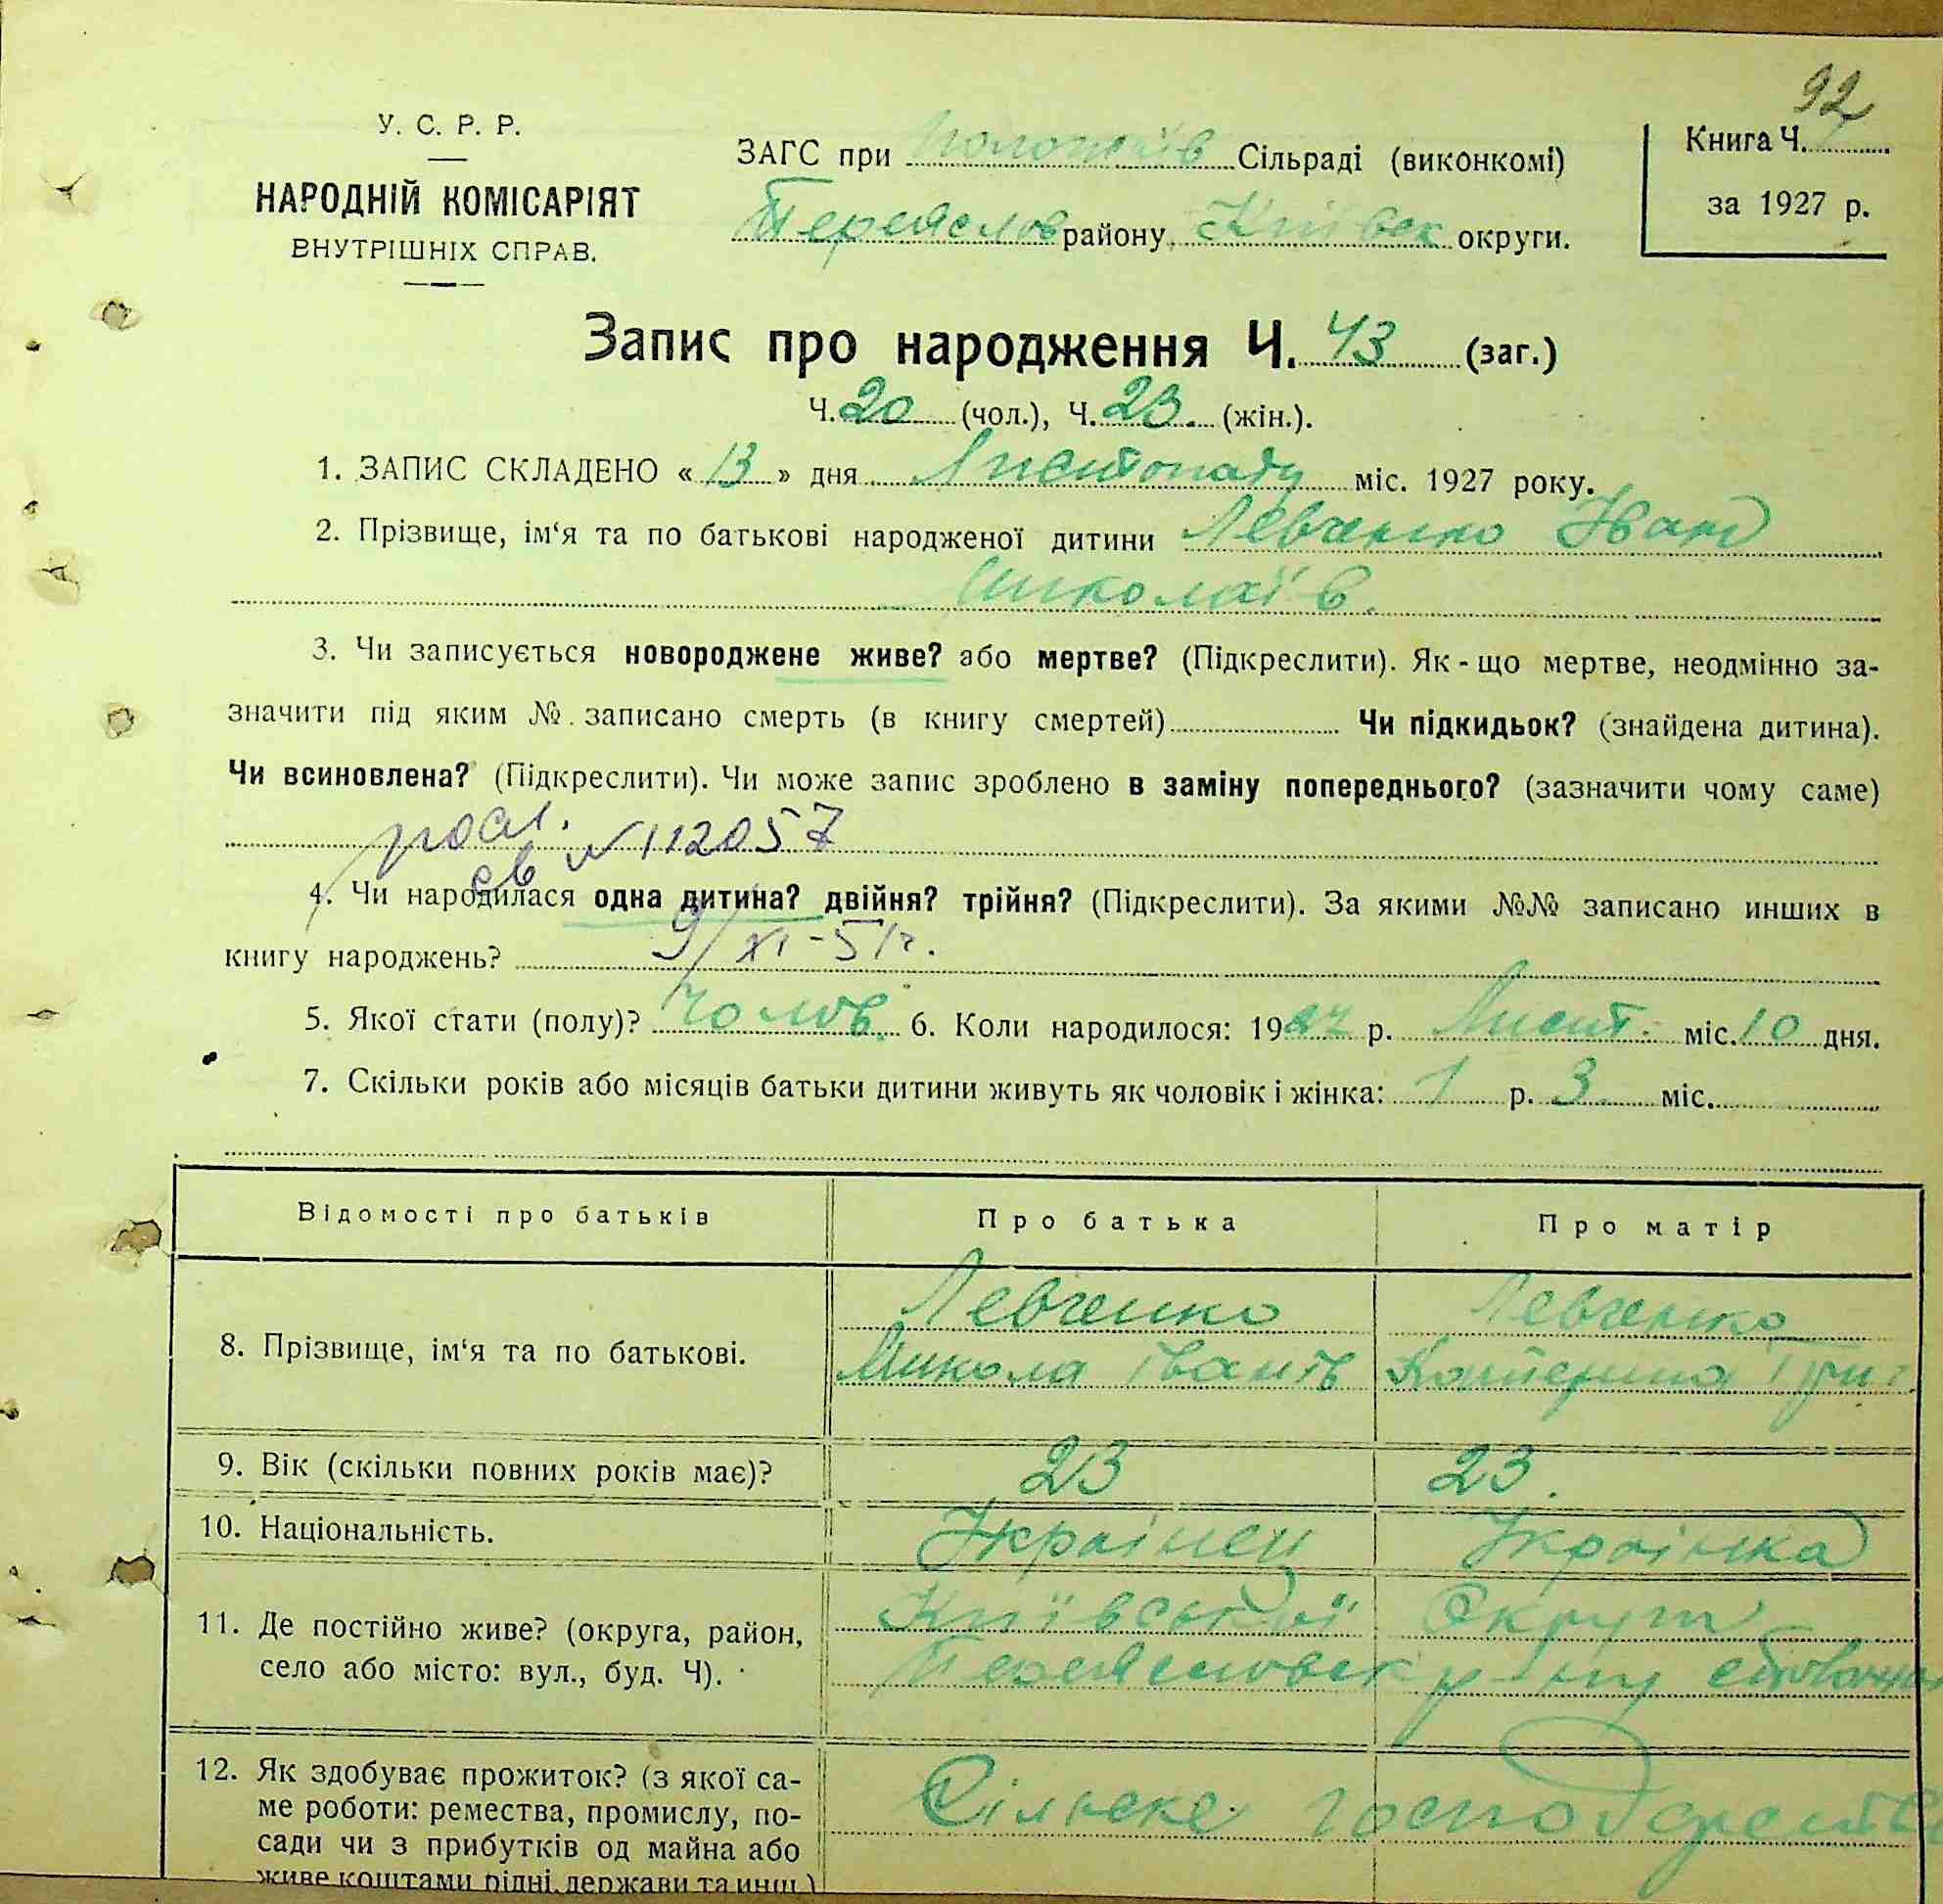 92
У. С. Р. Р.
НАРОДНІЙ КОМІСАРІЯТ
ВНУТРІШНІХ СПРАВ.
ЗАГС при Положаїв Сільраді (виконкомі)
Переяслов району, Київськ округи.
Книга Ч.
за 1927 р.
Запис про народження Ч. 43 (заг.)
Ч. 20 (чол.), Ч. 23. (жін.).
1. ЗАПИС СКЛАДЕНО « 13 » дня Листопаду міс. 1927 року.
2. Прізвище, ім‘я та по батькові народженої дитини Левченко Іван
Миколаїв.
3. Чи записується новороджене живе? або мертве? (Підкреслити). Як-що мертве, неодмінно за-
значити під яким №. записано смерть (в книгу смертей) Чи підкидьок? (знайдена дитина).
Чи всиновлена? (Підкреслити). Чи може запис зроблено в заміну попереднього? (зазначити чому саме)
св № 112057
4. Чи народилася одна дитина? двійня? трійня? (Підкреслити). За якими №№ записано инших в
книгу народжень? 9/XI-51г.
5. Якої стати (полу)? Чолов. 6. Коли народилося: 1927 р. Лист. міс. 10 дня.
7. Скільки років або місяців батьки дитини живуть як чоловік і жінка: 1 р. 3 міс.
Відомості про батьків Про батька Про матір
8. Прізвище, ім‘я та по батькові. Левченко Левченко
Микола Іванів Катерина Григ
9. Вік (скільки повних років має)? 23 23.
10. Національність. Українец Українка
11. Де постійно живе? (округа, район, Київської Округи
село або місто: вул., буд. Ч). Переясловск р-ну
12. Як здобуває прожиток? (з якої са- Сільске господарство
ме роботи: ремества, промислу, по-
сади чи з прибутків од майна або
живе коштами рідні, держави та инш.)